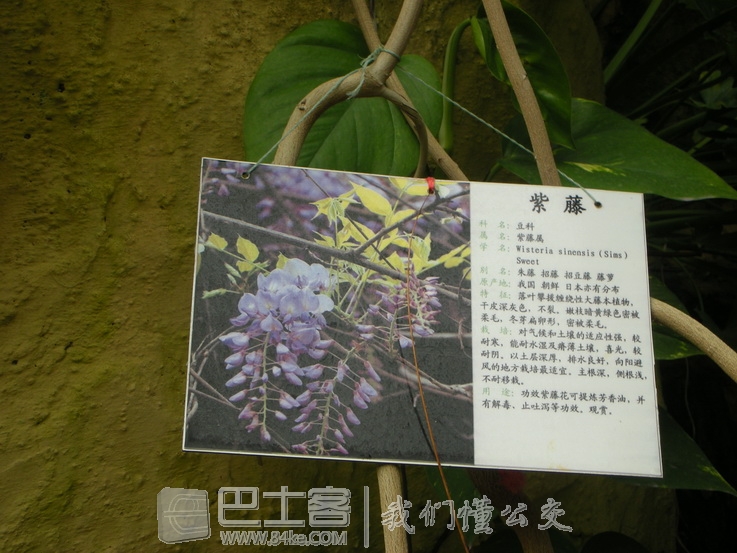 紫藤
科 名: 豆科
属 名: 紫藤属
学 名: Wisteria sinensis (Sims)
Sweet
别 名: 朱藤 招藤 招豆藤 藤萝
原产地: 我国 朝鲜 日本亦有分布
特 征: 落叶攀援缠绕性大藤本植物,
干皮深灰色, 不裂。嫩枝暗黄绿色密被
柔毛。冬芽扁卵形, 密被柔毛。
栽 培: 对气候和土壤的适应性强, 较
耐寒, 能耐水湿及瘠薄土壤, 喜光, 较
耐阴。以土层深厚, 排水良好, 向阳避
风的地方栽培最适宜。主根深, 侧根浅,
不耐移栽。
用 途: 功效紫藤花可提炼芳香油, 并
有解毒、止吐泻等功效。观赏。
巴士客
www.84ke.com
我们懂公交